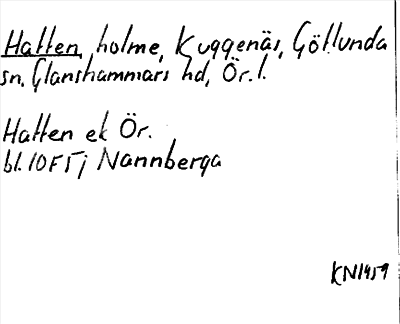 Hatten, holme, Kuggenäs, Götlunda
sn, Glanshammars hd, Ör. l.
Hatten ek Ör.
bl. 10F5j Nannberga
KN1959